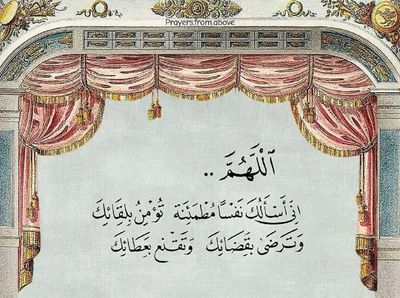 Prayers.from.above
اَللّٰهُمَّ ..
انِّي أَسْأَلُكَ نَفْسًا مُطْمَئِنَّةً تُؤْمِنُ بِلِقَائِكَ
وَتَرْضَىٰ بِقَضَائِكَ وَتَقْنَع بِعَطَائِكَ